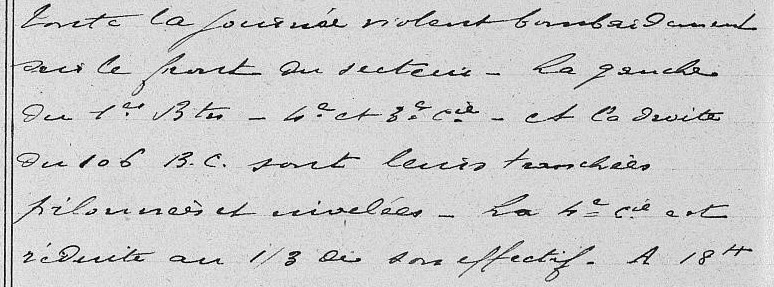 toute la journée violent bombardement
sur le front du secteur - La gauche
du 1er Btn - 4e et 3e Cie - et la droite
du 106 B.C. sont leurs tranchées
pilonnées et nivelées - La 4e Cie est
réduite au 1/3 de son effectif. A 18H